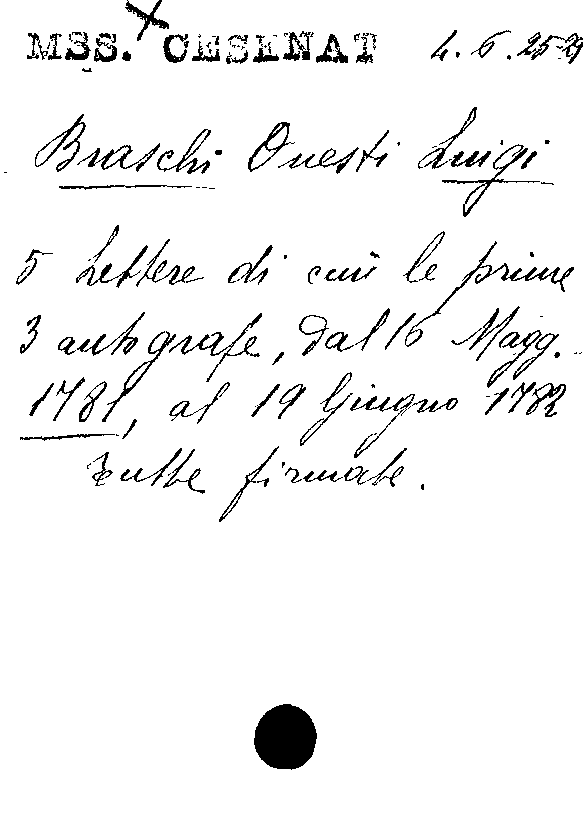 MSS. CESENAT 4. 6. 25-29
Braschi Onesti Luigi
5 Lettere di cui le prime
3 autografe, dal 16 Magg.
1781, al 19 Giugno 1782
Tutte firmate.